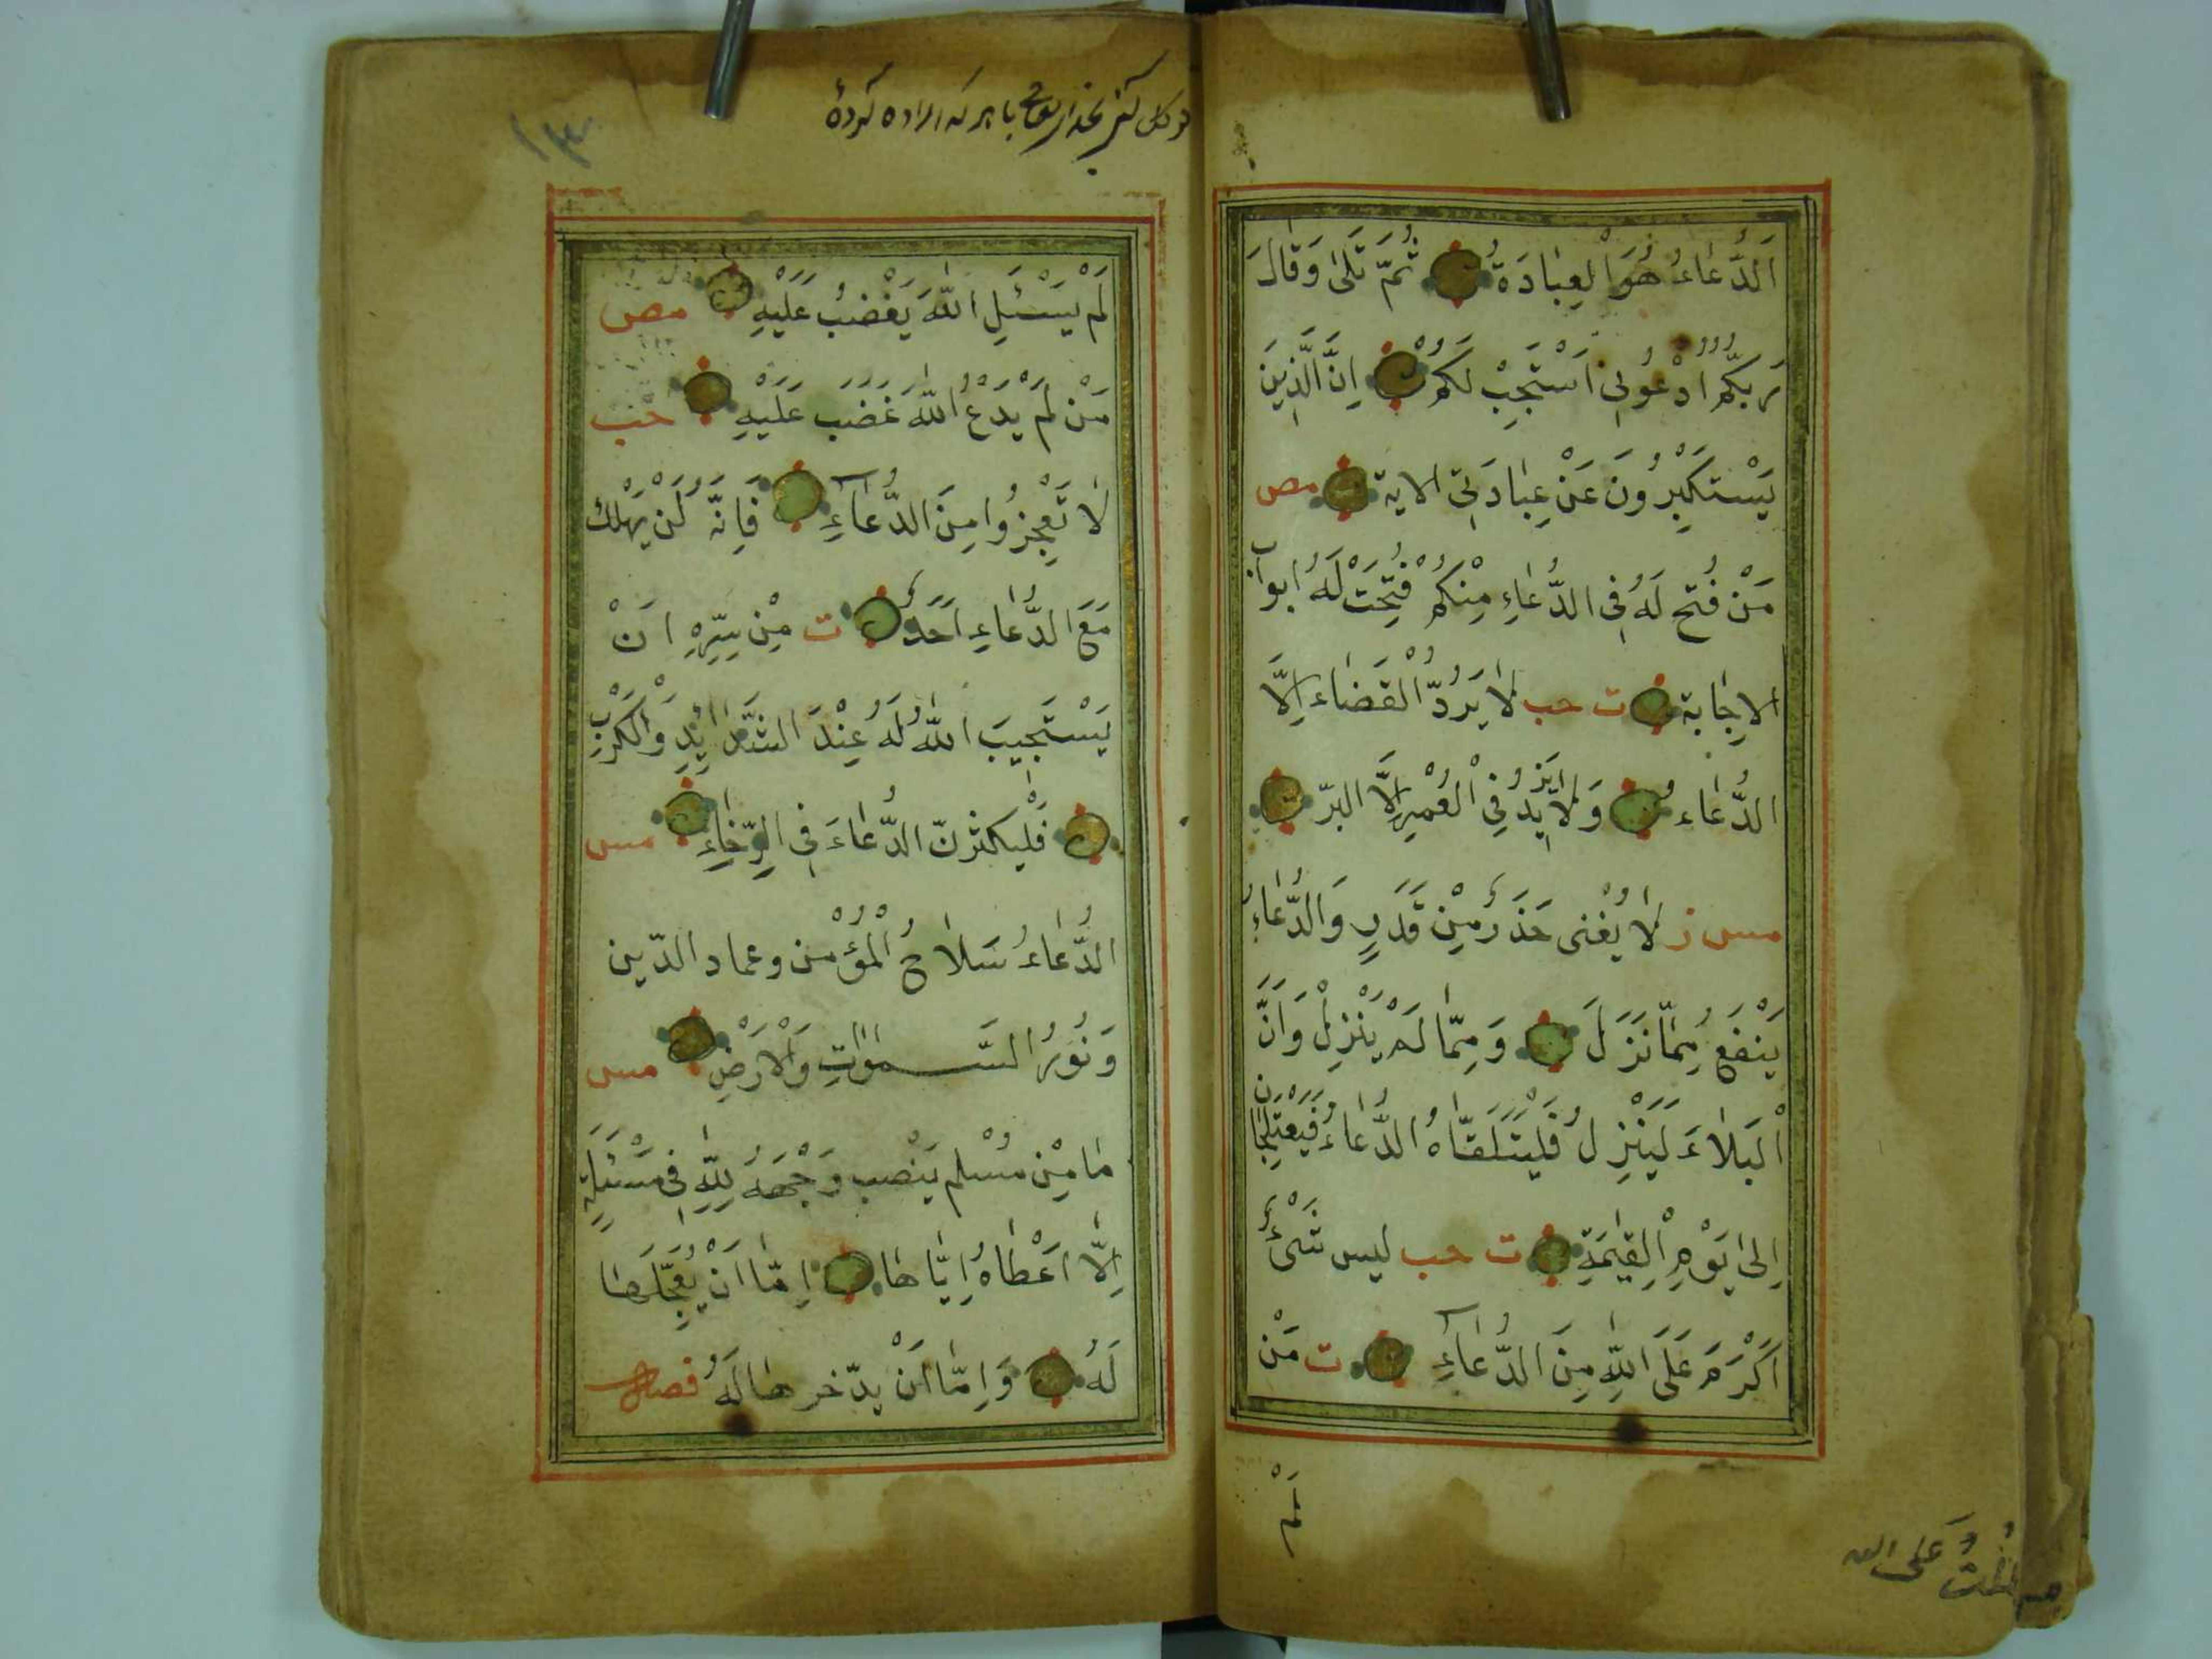 اَلدُّعٰاءُ هُوَ الْعِبٰادَةُ ثُمَّ تَلىٰ وَقٰالَ
رَبُّكُمُ ادْعُونِى اَسْتَجِبْ لَكُمْ اِنَّ الَّذِينَ
يَسْتَكْبِرُونَ عَنْ عِبٰادَتِى الاية مص
مَنْ فُتِحَ لَهُ فِى الدُّعٰاءِ مِنْكُمْ فُتِحَتْ لَهُ ابواب
الاِجٰابة ت حب لاٰ يَرُدُّ الْقَضٰاءَ اِلَّا
الدُّعٰاء وَلاٰ يَزِيدُ فِى الْعُمْرِ اِلَّا البرّ
مس ز لاٰ يُغْنى حَذَرٌ مِنْ قَدَرٍ وَالدُّعٰاءُ
يَنْفَعُ مِمّٰا نَزَلَ وَمِمّٰا لَمْ يَنْزِلْ وَاَنَّ
الْبَلاٰءَ لَيَنْزِلُ فَلْيَتَلَقّٰاهُ الدُّعٰاءُ فَيَعْتَلِجٰانِ
اِلىٰ يَوْمِ الْقِيٰمَةِ ت حب ليس شَىْءٌ
اَكْرَمَ عَلَى اللّٰهِ مِنَ الدُّعٰآءِ ت مَنْ
لَمْ
عَلى الله
كردهٔ اراده كه باهر
١٣
لَمْ يَسْئَلِ اللّٰهَ يَغْضِبُ عَلَيْهِ مص
مَنْ لَمْ يَدْعُ اللّٰهَ غَضَبَ عَلَيْهِ حب
لاٰ تَعْجِزُوا مِنَ الدُّعٰآءِ فَاِنَّهُ لَنْ يَهْلِك
مَعَ الدُّعٰاءِ اَحَدٌ ت مَنْ سَرَّهِ اَنْ
يَسْتَجِيبَ اللّٰهُ لَهُ عِنْدَ الشَّدٰائِدِ وَالْكَرْبِ
فَلْيكثرنّ الدُّعٰاءَ فِى الرَّخٰاءِ مس
الدُّعٰاءُ سَلاٰحُ الْمُؤْمن وعماد الدّين
وَنُورُ السَّمٰوٰاتِ وَالْاَرْضِ مس
مٰا مِنْ مُسْلم يَنْصب وَجْهَهُ لِلّٰهِ فِى مَسْئَلَةٍ
اِلّاٰ اَعْطٰاهُ اِيّٰاهٰا اِمّٰا اَنْ يُعَجِّلَهٰا
لَهُ وَاِمّٰا اَنْ يدّخرهٰا لَهُ